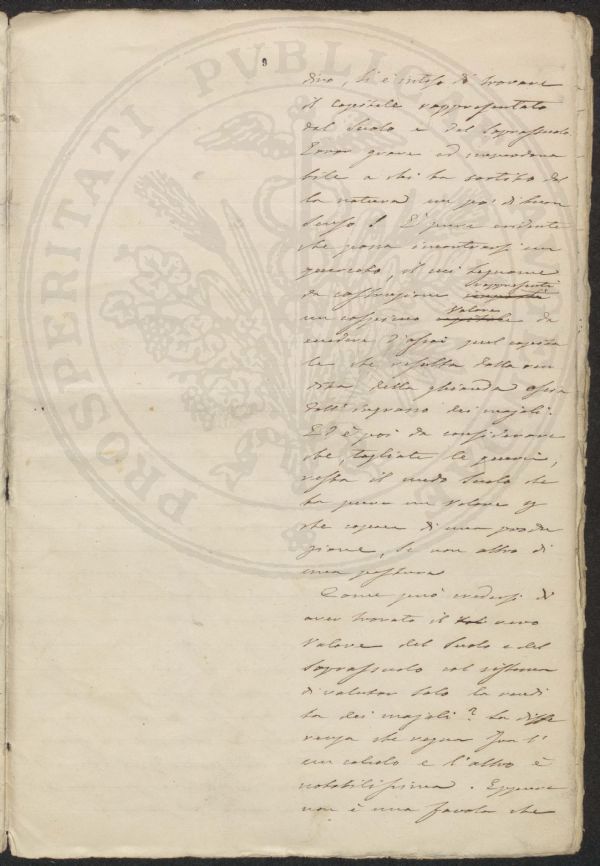 dino, si è inteso di trovare
il capitale rappresentato
dal Suolo e dal Soprassuolo.
Error grave ed imperdona
bile a chi ha sortito dal
la natura un po' di buon
senso! È pure evidente
che possa incontrarsi un
querceto, il cui legname
da costruzione rappresenti
un cospicuo valore da
eccedere d'assai quel capita
le che risulta dalla ren
dita della ghianda ossia
dall'ingrasso dei majali.
Ed è poi da considerare
che, tagliate le querce,
resta il nudo Suolo che
ha pure un valore
che capace di una produ
zione, se non altro di
una pastura
Come può credersi di
aver trovato il vero
valore del Suolo e del
Soprassuolo col sistema
di valutar solo la rendi
ta dei majali? La diffe
renza che regna fra l'
un calcolo e l'altro è
notabilissima. Eppure
non è una favola che
PROSPERITATI PUBLICAE